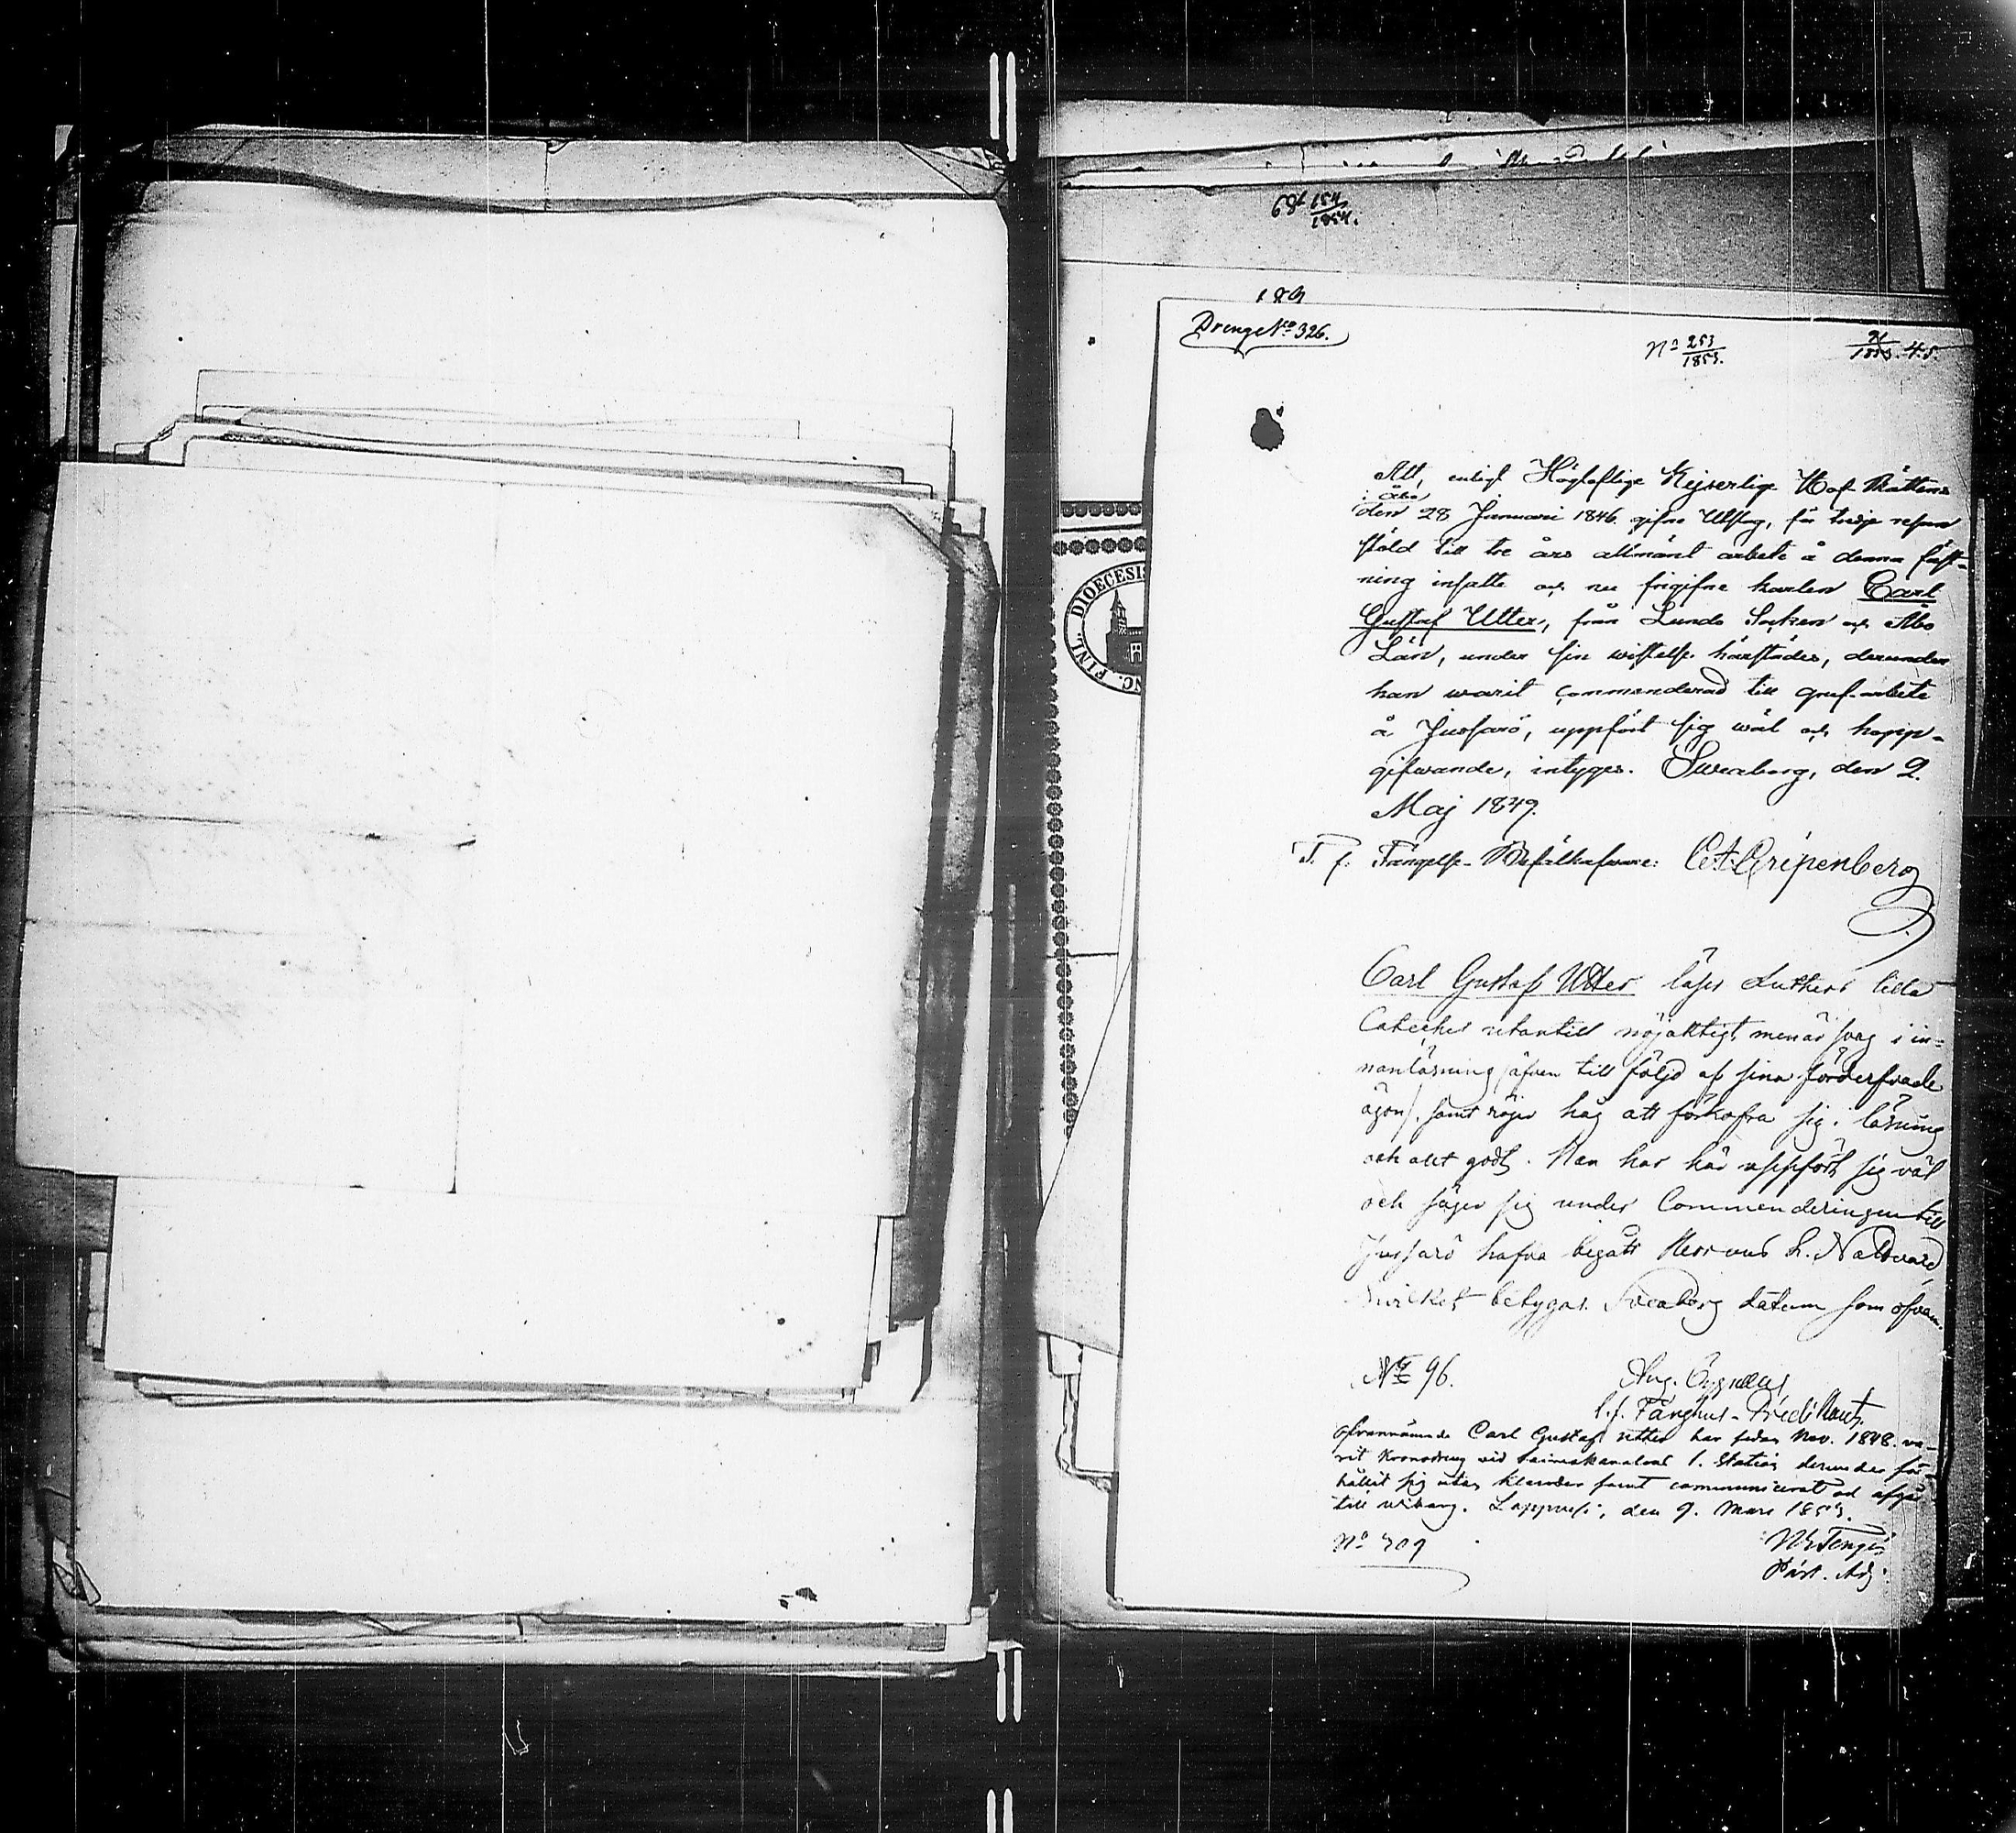 154
1854.
DIOECESIS
FINL.
189
Drenge No 326.
No 253
1853.
Att, enligt Högloflige Kejserlige Hof Rättens
i Åbo
den 28 Januari 1846 gifne Utslag, för tredje resan
stöld till tre års allmänt arbete å denna fäst-
ning insatte och nu frigifne karlen Carl
Gustaf Utter, från Lundo Socken och Åbo
Län, under sin wistelse härstädes, derunder
han warit commenderad till gruf-arbete
å Jussarö, uppfört sig wäl och hopp-
gifwande, intygas. Sweaborg, den 2.
Maj 1849.
T. f. Fängelse-Befälhafware: Gripenberg
Carl Gustaf Utter läser Luthers lilla
Cateches utantill nöjaktigt, men är svag i in-
nanläsning /äfven till följd af sina förderfvade
ögon/, samt röjer håg att förkofra sig i läsning
och allt godt. Han har här uppfört sig väl
och säger sig under Commenderingen till
Jussarö hafva begått Herrans h. Nattvard
hvilket betygas. Sveaborg datum som ofvan.
No 96.
Aug. Cygnæus
t.f. Fånghus-Predikant.
Ofvannämnde Carl Gustaf Utter har sedan Nov. 1848 va-
rit Kronodreng vid Saima kanalens 1. Station derunder för-
hållit sig utan klander samt communicerat och afgår
till Wiborg. Lappvesi, den 9. Mars 1853.
No 309
Past. Adj.